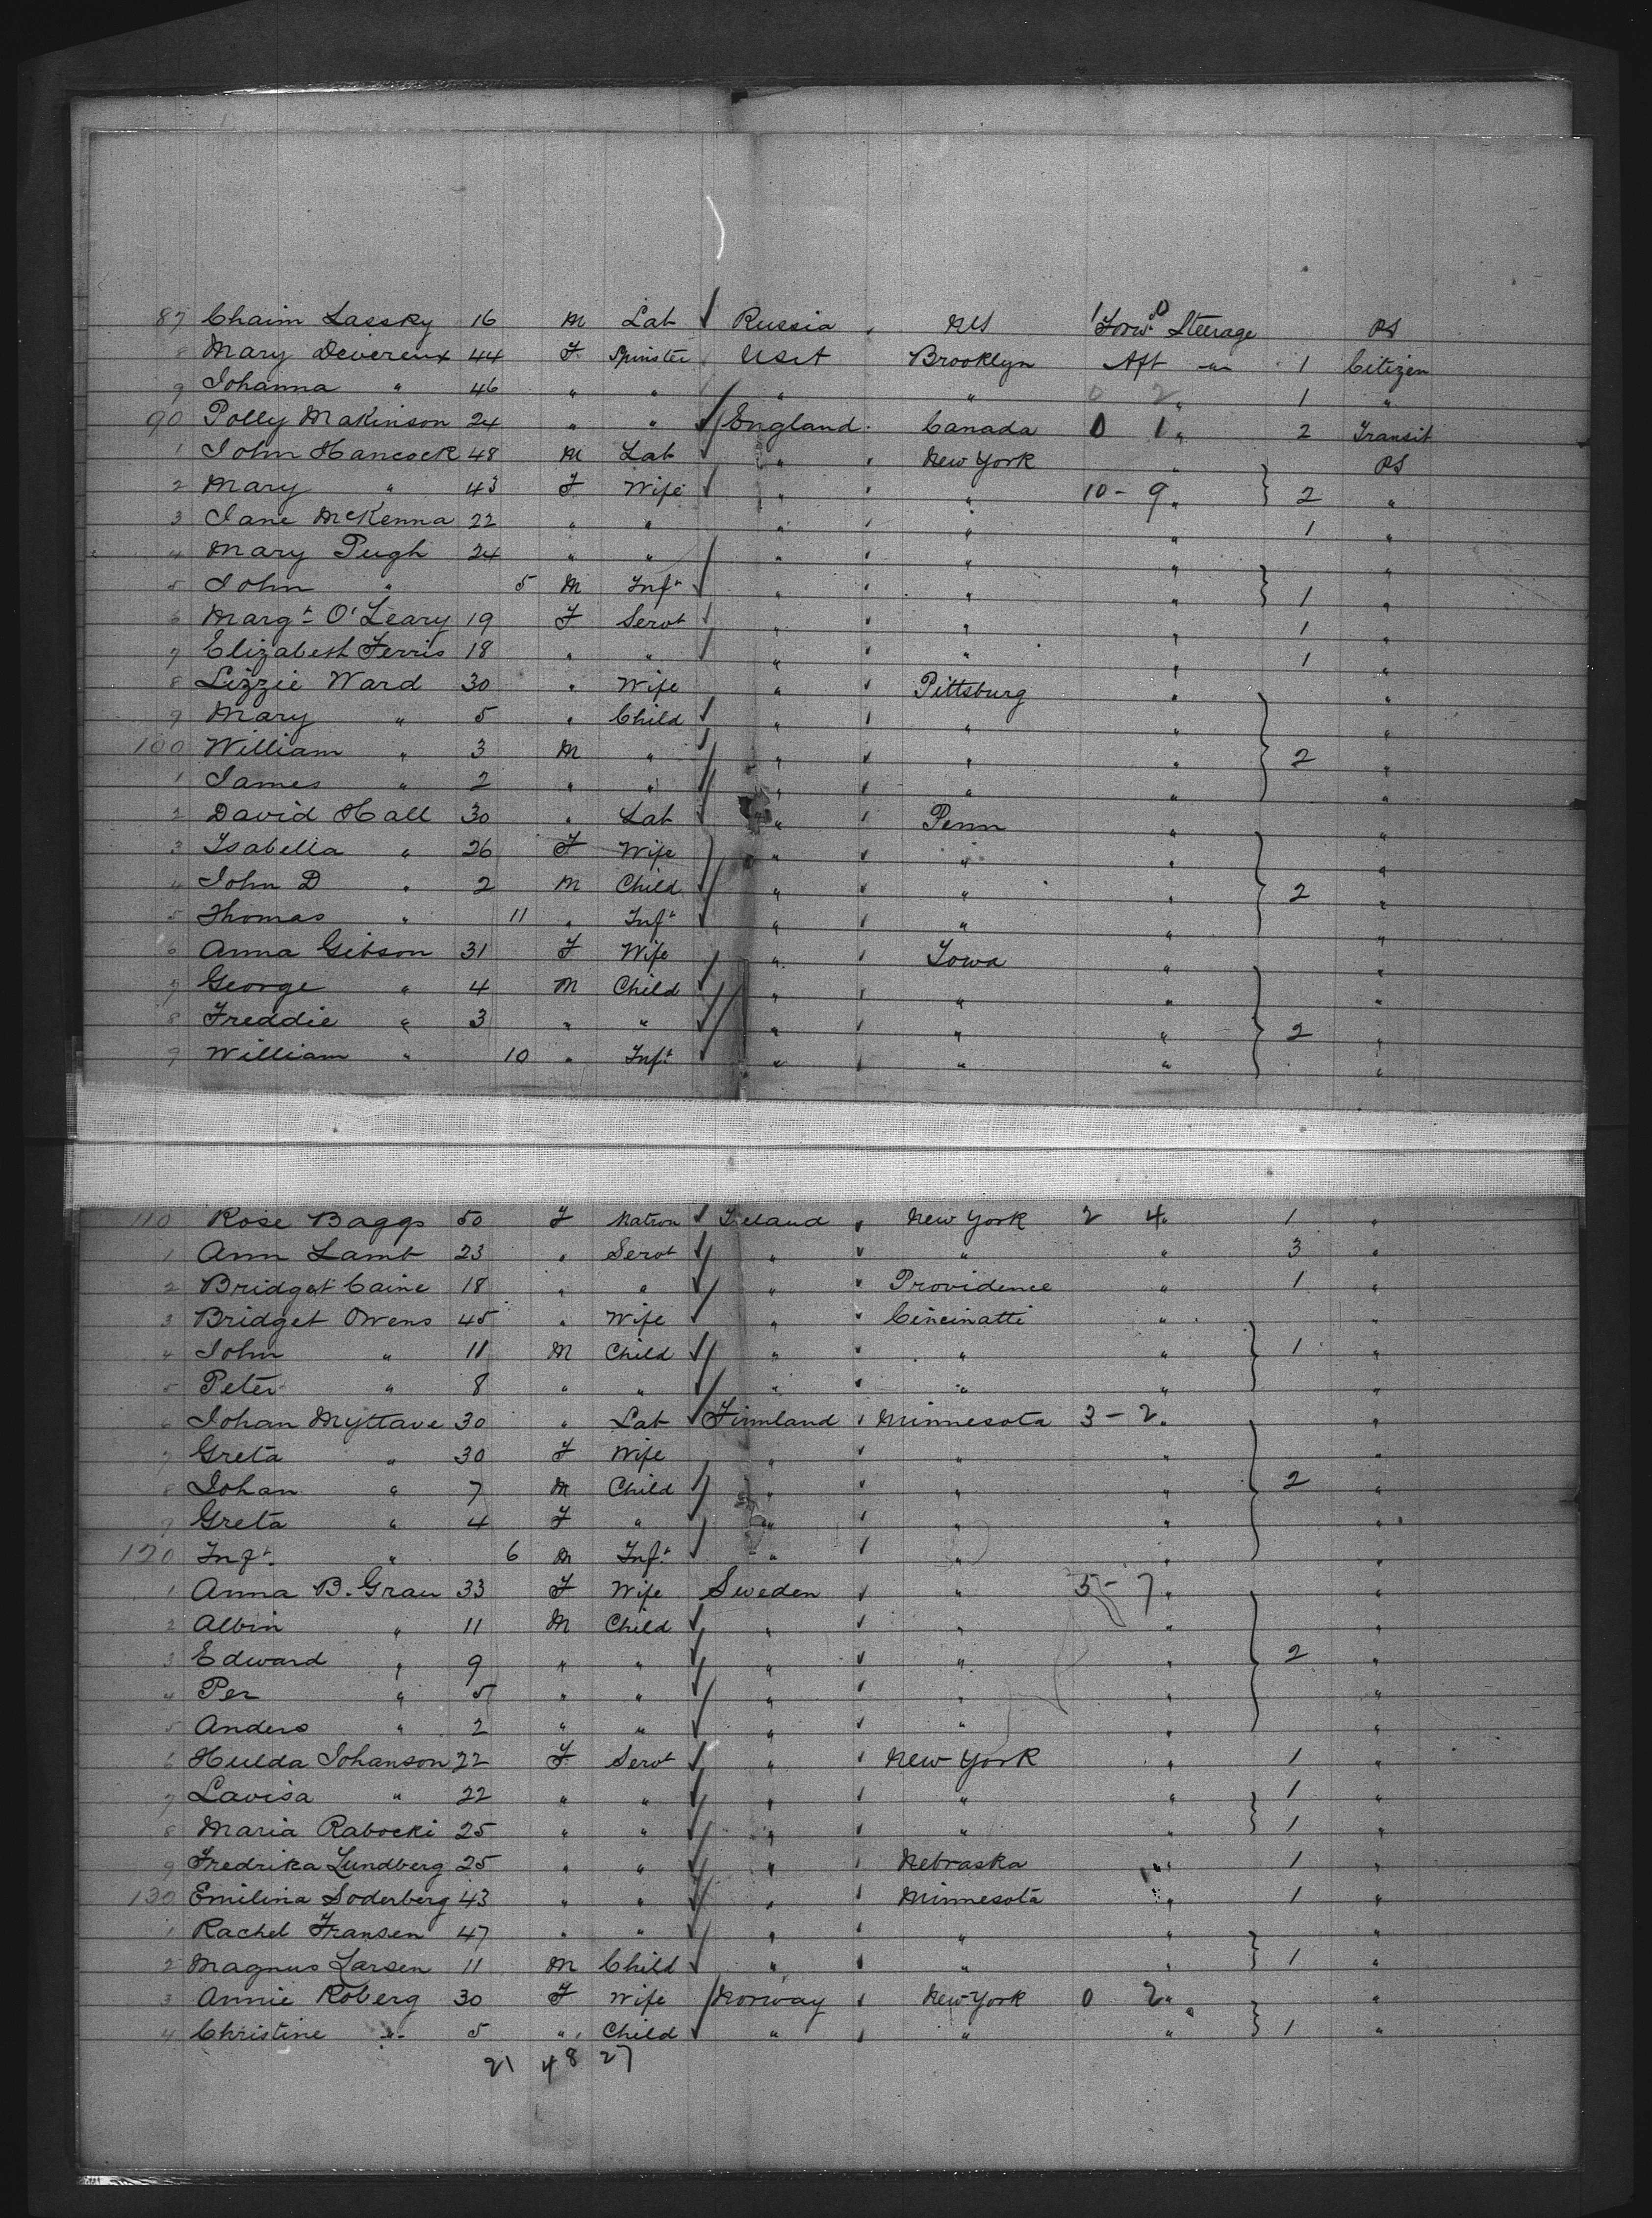 87 Chaim Lassky 16 M Lab Russia NY 1 Forwd Steerage PS
8 Mary Devereux 44 F Spinster USA Brooklyn Aft " 1 Citizen
9 Johanna " 46 " " " " 0 2 " 1 "
90 Polly Makinson 24 " " England Canada 0 1 " 2 Transit
1 John Hancock 48 M Lab " New York " PS
2 Mary " 43 F Wife " " 10 - 9 " } 2 "
3 Jane McKenna 22 " " " " " 1 "
4 Mary Pugh 24 " " " " " "
5 John " 5 M Inft " " " } 1 "
6 Margt O'Leary 19 F Servt " " " 1 "
7 Elizabeth Ferris 18 " " " " " 1 "
8 Lizzie Ward 30 " Wife " Pittsburg " "
9 Mary " 5 " Child " " " "
100 William " 3 M " " " " } 2 "
1 James " 2 " " " " " "
2 David Hall 30 " Lab " Penn " "
3 Isabella " 26 F Wife " " " "
4 John D " 2 M Child " " " } 2 "
5 Thomas " 11 " Inft " " " "
6 Anna Gibson 31 F Wife " Iowa " "
7 George " 4 M Child " " " "
8 Freddie " 3 " " " " " } 2 "
9 William " 10 " Inft " " " "
110 Rose Baggs 50 F Matron Ireland New York 2 4 " 1 "
1 Ann Lamb 23 " Servt " " " 3 "
2 Bridget Caine 18 " " " Providence " 1 "
3 Bridget Owens 45 " Wife " Cincinatti " "
4 John " 11 M Child " " " } 1 "
5 Peter " 8 " " " " " "
6 Johan Myttave 30 " Lab Finnland Minnesota 3 - 2 " "
7 Greta " 30 F Wife " " " "
8 Johan " 7 M Child " " " } 2 "
9 Greta " 4 F " " " " "
120 Inft " 6 M Inft " " " "
1 Anna B. Grau 33 F Wife Sweden " 5 - 7 " "
2 Albin " 11 M Child " " " "
3 Edward " 9 " " " " " } 2 "
4 Per " 5 " " " " " "
5 Anders " 2 " " " " " "
6 Hulda Johanson 22 F Servt " New York " 1 "
7 Lavisa " 22 " " " " " 1 "
8 Maria Rabocki 25 " " " " " } 1 "
9 Fredrika Lundberg 25 " " " Nebraska " 1 "
130 Emilina Soderberg 43 " " " Minnesota " 1 "
1 Rachel Fransen 47 " " " " " "
2 Magnus Larsen 11 M Child " " " } 1 "
3 Annie Roberg 30 F Wife Norway New York 0 2 " "
4 Christine " 5 " Child " " " } 1 "
21 48 27